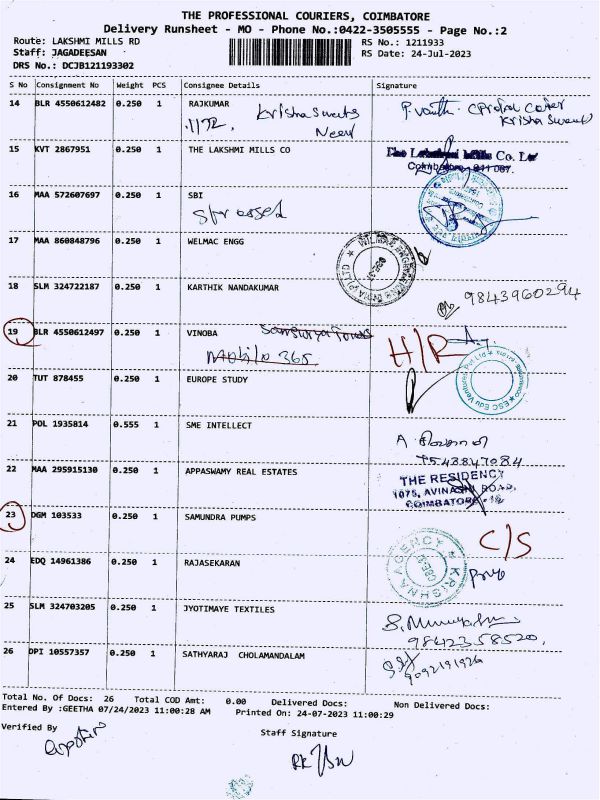 THE PROFESSIONAL COURIERS, COIMBATORE
Delivery Runsheet - MO - Phone No.:0422-3505555 - Page No.:2
Route: LAKSHMI MILLS RD RS No.: 1211933
Staff: JAGADEESAN RS Date: 24-Jul-2023
DRS No.: DCJB121193302
S No Consignment No Weight PCS Consignee Details Signature
14 BLR 4550612482 0.250 1 RAJKUMAR
Krisha Sweets
Krisha Sweet
15 KVT 2867951 0.250 1 THE LAKSHMI MILLS CO The Lakshmi Mills Co. Ltd
Coimbatore 641 037.
16 MAA 572607697 0.250 1 SBI
17 MAA 860848796 0.250 1 WELMAC ENGG
18 SLM 324722187 0.250 1 KARTHIK NANDAKUMAR 9843960294
19 BLR 4550612497 0.250 1 VINOBA
Mobile 365 H/R
20 TUT 878455 0.250 1 EUROPE STUDY
ESC Edu Ventures Pvt Ltd
21 POL 1935814 0.555 1 SME INTELLECT
7543847084
22 MAA 295915130 0.250 1 APPASWAMY REAL ESTATES THE RESIDENCY
1075, AVINASHI ROAD,
COIMBATORE - 18
23 DGM 103533 0.250 1 SAMUNDRA PUMPS C/S
24 EDQ 14961386 0.250 1 RAJASEKARAN
KRISHNA AGENCY
25 SLM 324703205 0.250 1 JYOTIMAYE TEXTILES
9842358520
26 DPI 10557357 0.250 1 SATHYARAJ CHOLAMANDALAM
9092191926
Total No. Of Docs: 26 Total COD Amt: 0.00 Delivered Docs: Non Delivered Docs:
Entered By :GEETHA 07/24/2023 11:00:28 AM Printed On: 24-07-2023 11:00:29
Verified By Staff Signature